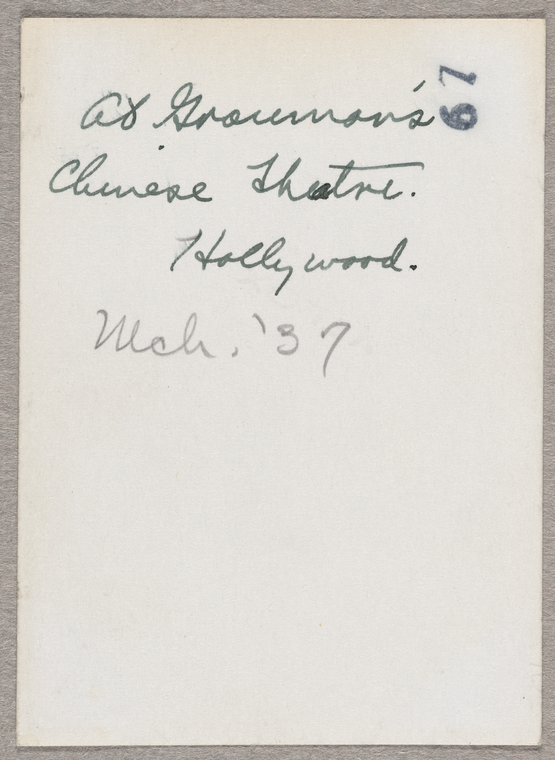 67
At Grauman's
Chinese Theatre.
Hollywood.
Mch. '37